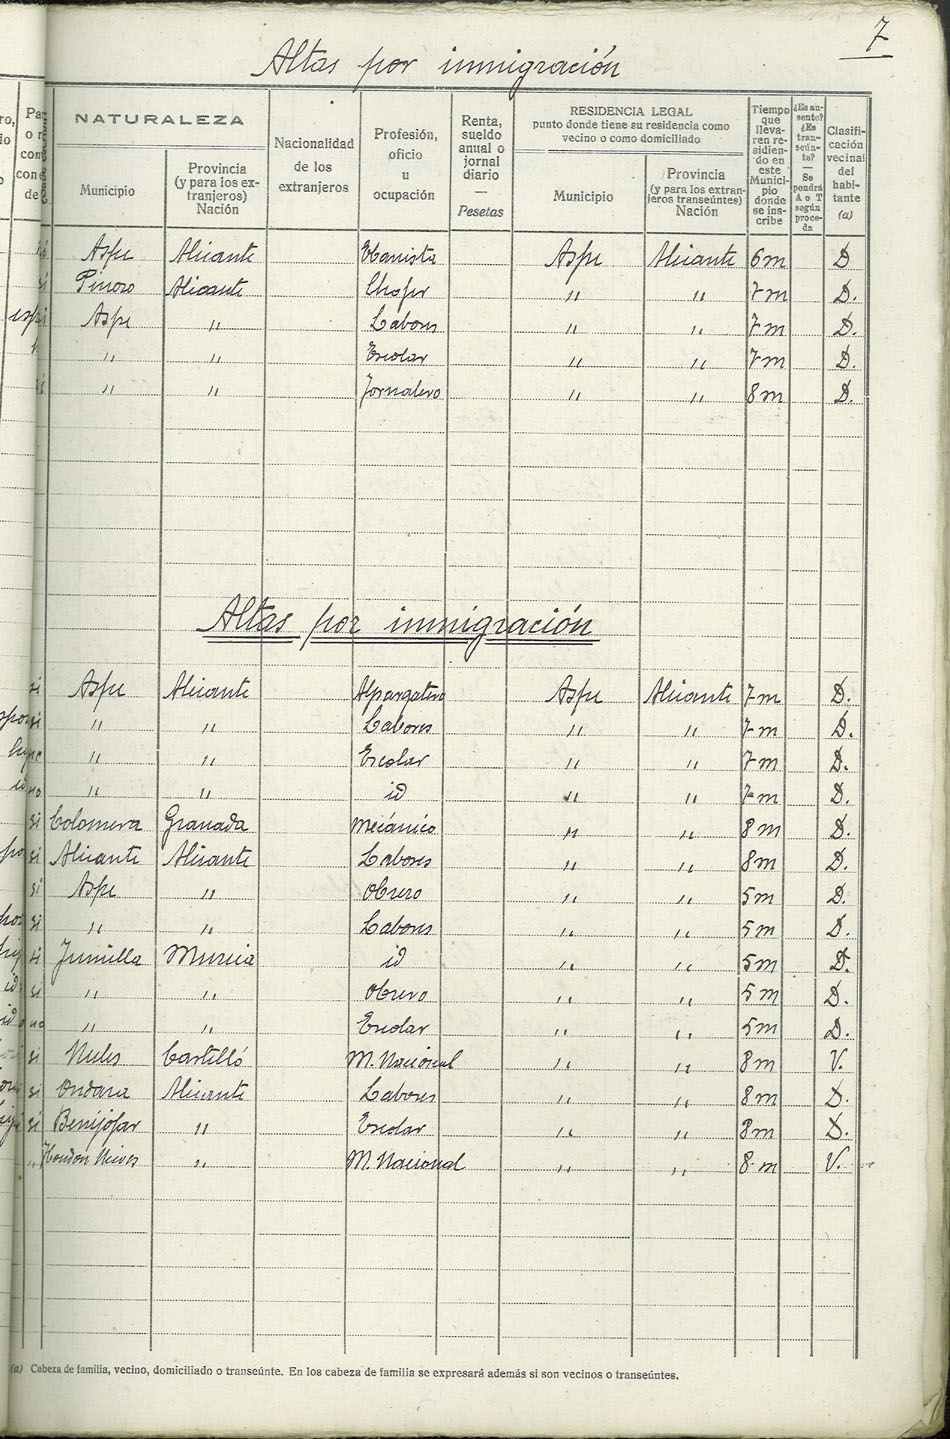 7
Altas por inmigración
NATURALEZA
Municipio
Provincia
(y para los ex-
tranjeros)
Nación
Nacionalidad
de los
extranjeros
Profesión,
oficio
u
ocupación
Renta,
sueldo
anual o
jornal
diario
—
Pesetas
RESIDENCIA LEGAL
punto donde tiene su residencia como
vecino o como domiciliado
Municipio
Provincia
(y para los extran-
jeros transeúntes)
Nación
Tiempo
que
lleva-
ren re-
sidien-
do en
este
Munici-
pio
donde
se ins-
cribe
¿Es au-
sente?
¿Es
tran-
seún-
te?
—
Se
pondrá
A o T
según
proce-
da
Clasifi-
cación
vecinal
del
habi-
tante
(a)
Aspe Alicante Ebanista Aspe Alicante 6 m D
si Pinoso Alicante Chofer " " 7 m D.
Aspe " Labores " " 7 m D.
" " Escolar " " 7 m D.
" " Jornalero " " 8 m D.
Altas por inmigración
si Aspe Alicante Alpargatero Aspe Alicante 7 m D.
si " " Labores " " 7 m D.
" " Escolar " " 7 m D.
id no " " id " " 7 m D.
si Colomera Granada Mecánico " " 8 m D.
si Alicante Alicante Labores " " 8 m D.
si Aspe " Obrero " " 5 m D.
si " " Labores " " 5 m D.
si Jumilla Murcia id " " 5 m D.
id si " " Obrero " " 5 m D.
id no " " Escolar " " 5 m D.
si Nules Castelló M. Nacional " " 8 m V.
si Ondara Alicante Labores " " 8 m D.
si Benijofar " Escolar " " 8 m D.
" Hondón Nieves " M. Nacional " " 8 m V.
(a) Cabeza de familia, vecino, domiciliado o transeúnte. En los cabeza de familia se expresará además si son vecinos o transeúntes.